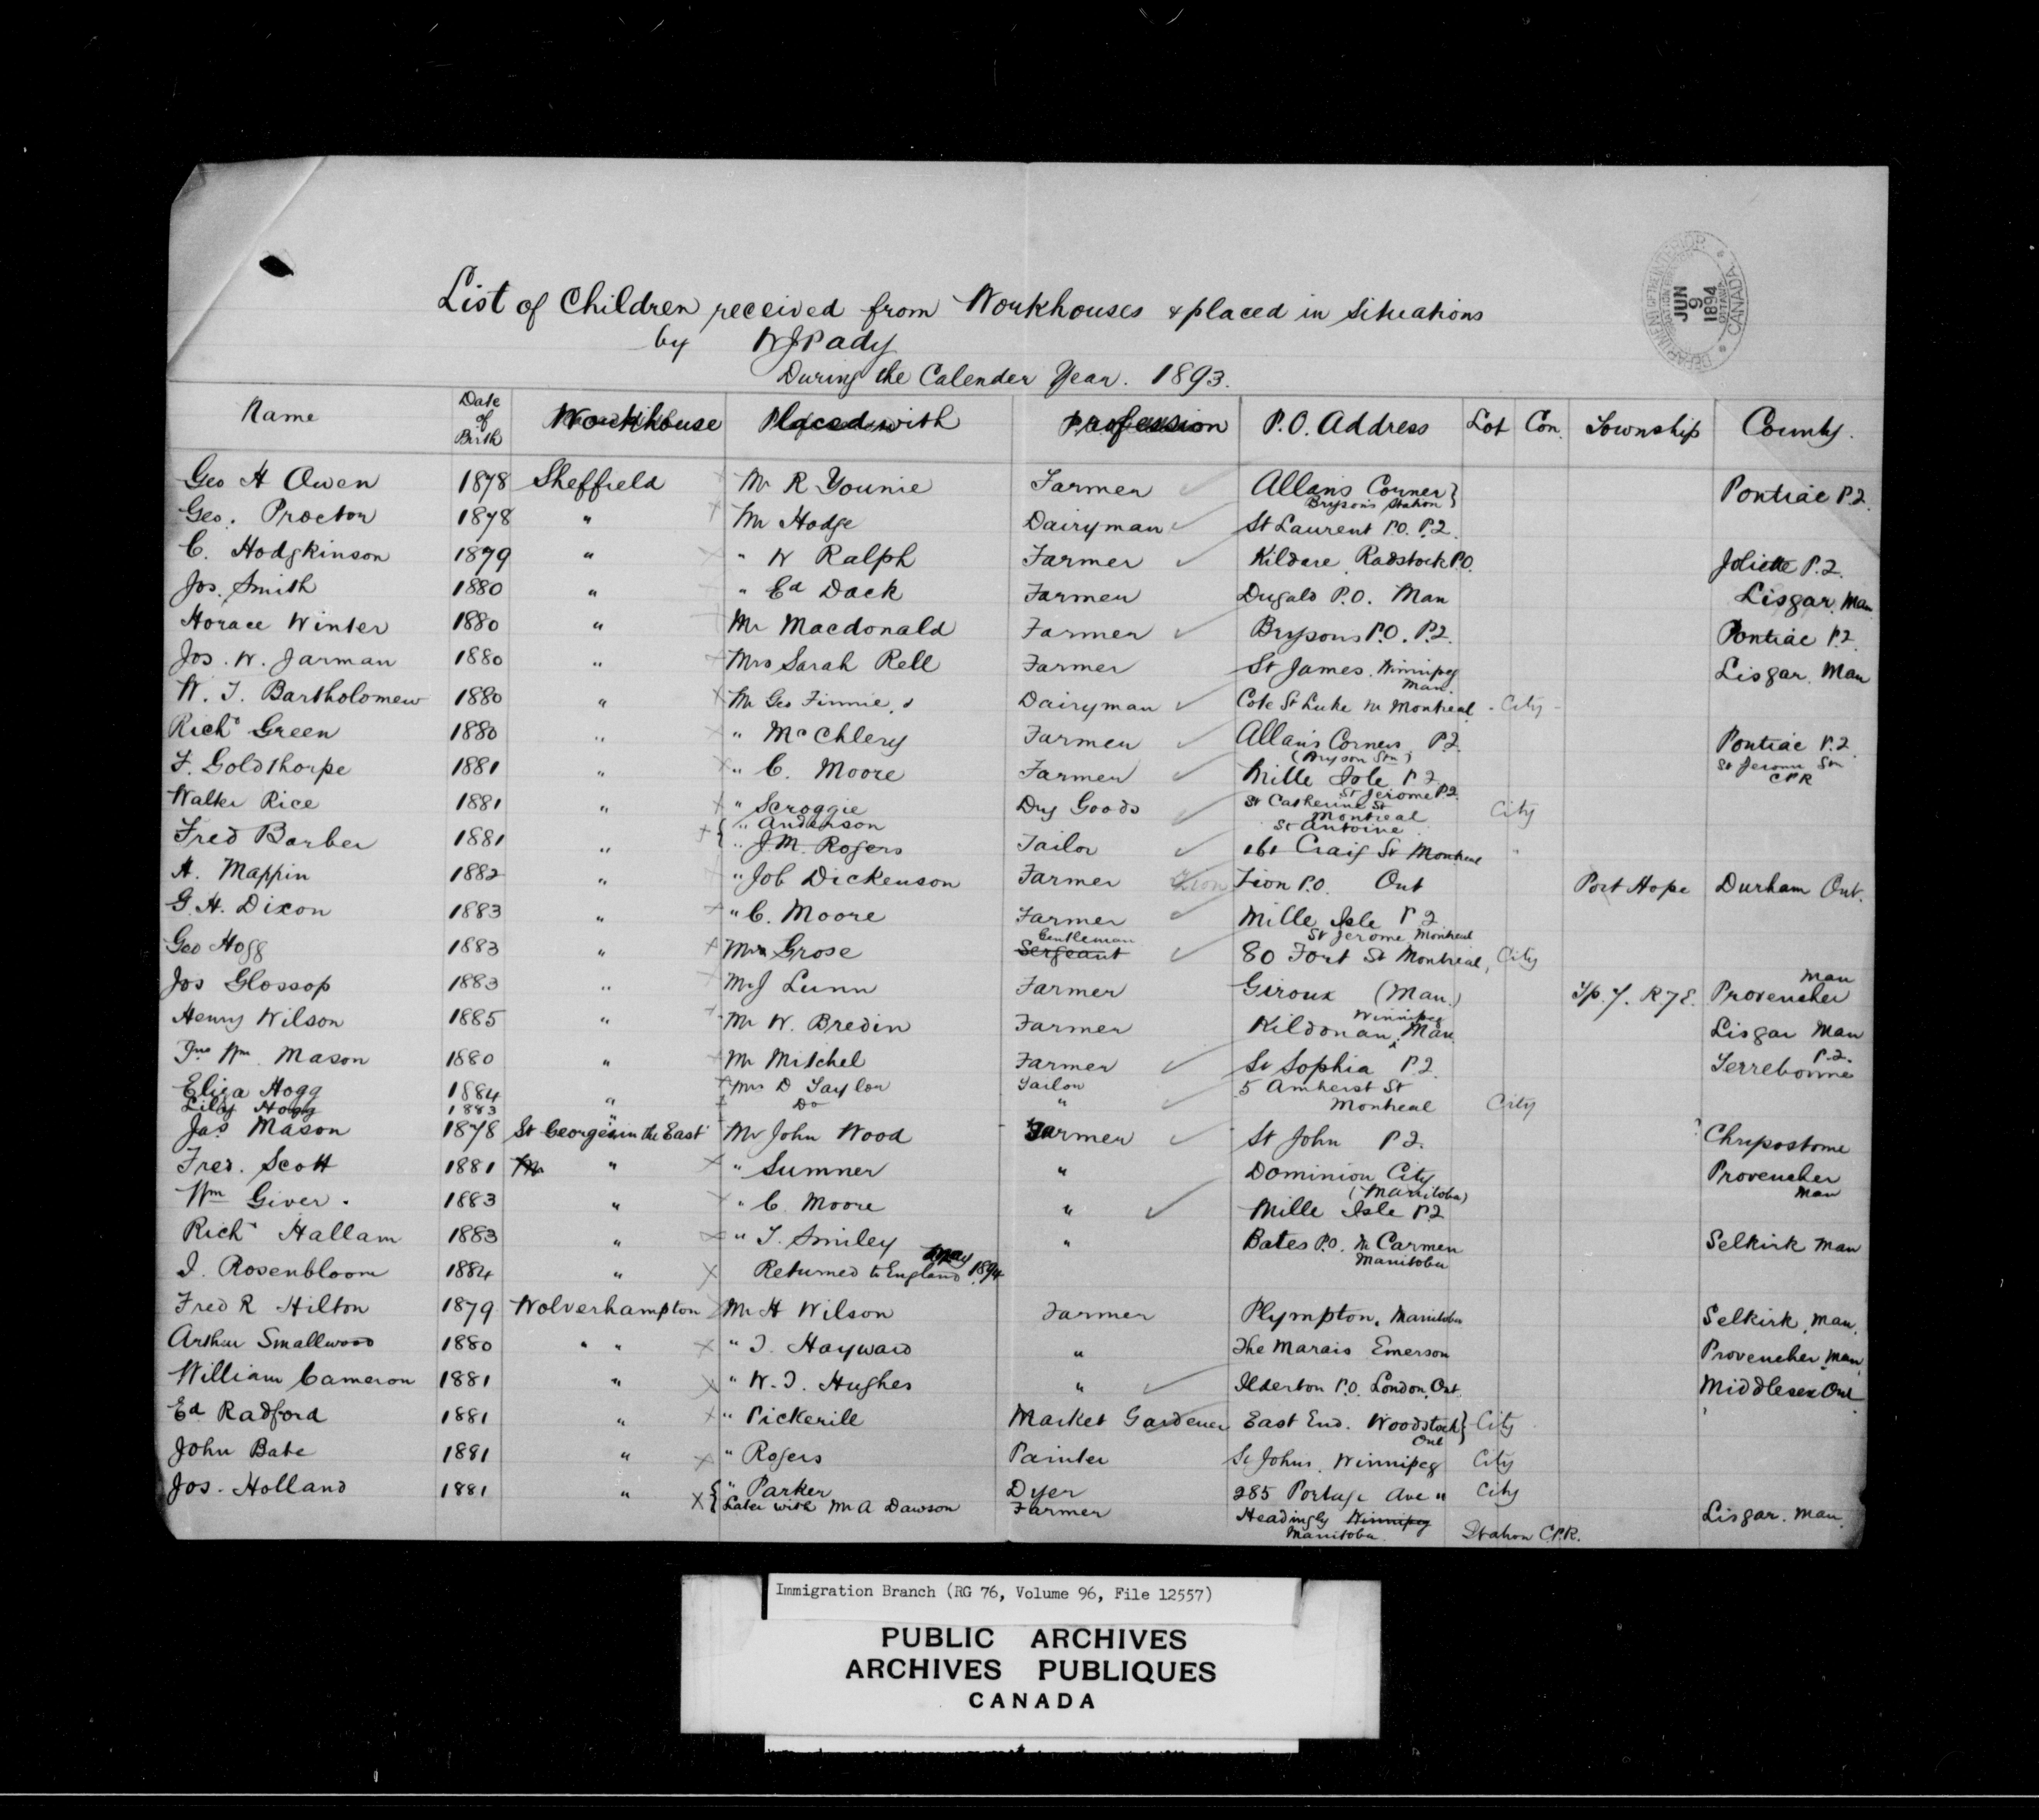 List of Children received from Workhouses & placed in Situations
by W J Pady
During the Calender Year. 1893.
DEPARTMENT OF THE INTERIOR JUN 9 1894 OTTAWA CANADA
Name Date of Birth Workhouse Placed with Profession P.O. Address Lot Con. Township County.
Geo H Owen 1878 Sheffield Mr R Younie Farmer Allans Corner } Brysons Station Pontiac P.2.
Geo. Proctor 1878 " Mr Hodge Dairyman St Laurent P.O. P.2.
C. Hodgkinson 1879 " " W Ralph Farmer Kildare, Radstock P.O. Joliette P.2.
Jos. Smith 1880 " " Ed Dack Farmer Dugald P.O. Man Lisgar. Man
Horace Winter 1880 " Mr Macdonald Farmer Brysons P.O. P.2. Pontiac P.2.
Jos. W. Jarman 1880 " Mrs Sarah Rell Farmer St James. Winnipeg Man. Lisgar. Man
W. T. Bartholomew 1880 " Mr Geo Finnie Dairyman Cote St Luke nr Montreal - City -
Richd Green 1880 " " McChlery Farmer Allans Corners P.2. (Bryson Stn) Pontiac P.2.
F. Goldthorpe 1881 " " C. Moore Farmer Mille Isle P2 St Jerome P2. St Jerome Stn CPR
Walter Rice 1881 " " Scroggie Dry Goods St Catherine St Montreal City
Fred Barber 1881 " { " Anderson " J.M. Rogers Tailor St Antoine 161 Craig St Montreal "
A. Mappin 1882 " " Job Dickenson Farmer Zion Zion P.O. Ont Port Hope Durham Ont.
G. H. Dixon 1883 " " C. Moore Farmer Mille Isle P2 St Jerome, Montreal
Geo Hogg 1883 " Mrs Grose Gentleman Sergeant 80 Fort St Montreal, City
Jos Glossop 1883 " Mr J Lunn Farmer Giroux (Man.) T/p. 7. R. 7 E. Provencher Man
Henry Wilson 1885 " Mr W. Bredin Farmer Kildonan, Winnipeg Man. Lisgar Man
Jno Wm Mason 1880 " Mr Mitchel Farmer St Sophia P2. Terrebonne P.2.
Eliza Hogg 1884 " Mrs D Taylor Tailor 5 Amherst St
Lilly Hogg 1883 " Do " Montreal City
Jas Mason 1878 St George's in the East Mr John Wood Farmer St John P2. ? Chrysostome
Fred. Scott 1881 " " Sumner " Dominion City (Manitoba) Provencher Man
Wm Giver. 1883 " " C. Moore " Mille Isle P2
Richd Hallam 1883 " " T. Smiley " Bates P.O. Nr Carmen Manitoba Selkirk Man
I. Rosenbloom 1884 " Returned to England May 1894
Fred R Hilton 1879 Wolverhampton Mr H Wilson Farmer Plympton. Manitoba Selkirk, Man.
Arthur Smallwood 1880 " " " J. Hayward " The Marais Emerson Provencher, Man
William Cameron 1881 " " W. J. Hughes " Ilderton P.O. London, Ont. Middlesex Ont
Ed Radford 1881 " " Pickerill Market Gardener East End. Woodstock Ont } City
John Bate 1881 " " Rogers Painter St Johns. Winnipeg City
Jos. Holland 1881 " { " Parker Dyer 285 Portage Ave " City
Later with Mr A Dawson Farmer Headingly Winnipeg Manitoba. Station C.P.R. Lisgar. Man.
Immigration Branch (RG 76, Volume 96, File 12557)
PUBLIC ARCHIVES
ARCHIVES PUBLIQUES
CANADA